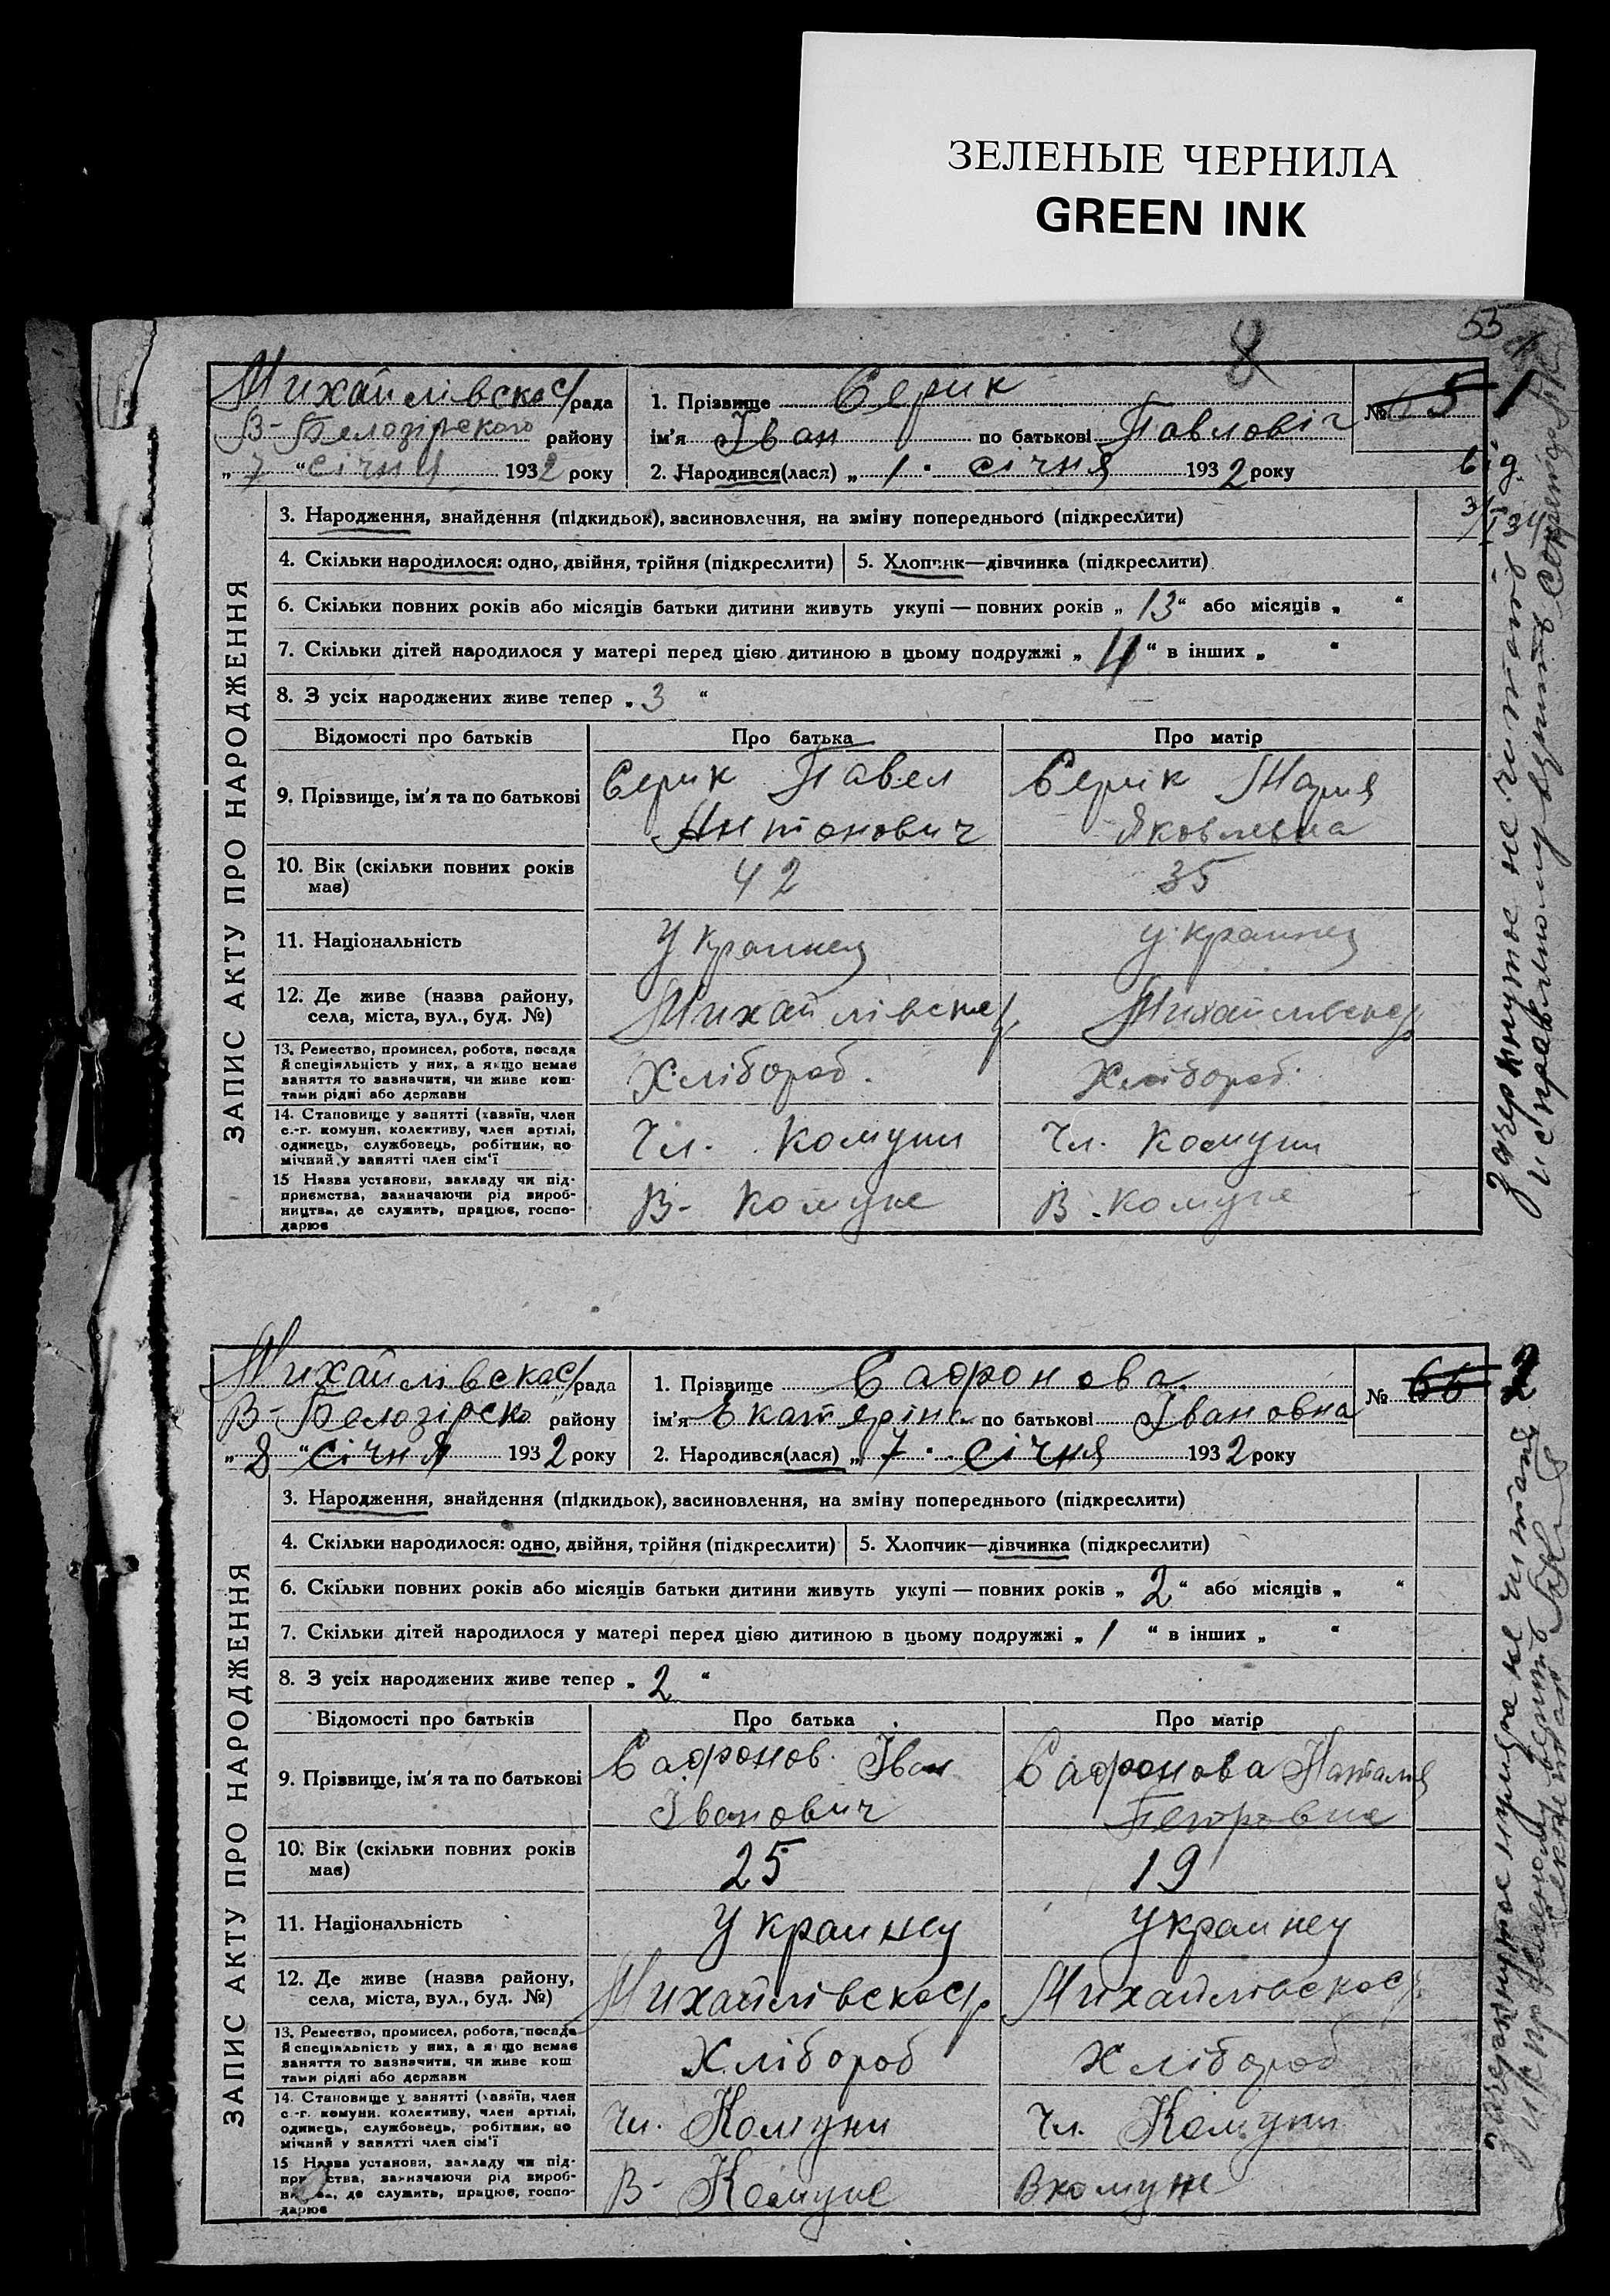 ЗЕЛЕНЫЕ ЧЕРНИЛА
GREEN INK
53
8
Михайлівска с/рада
В-Белозірского району
„ 7 “ січня 1932 року
1. Прізвище Серик
ім'я Іван по батькові Павловіч
2. Народився(лася) „ 1 “ січня 1932 року
№ 1
від
ЗАПИС АКТУ ПРО НАРОДЖЕННЯ
3. Народження, знайдення (підкидьок), засиновлення, на зміну попереднього (підкреслити)
4. Скільки народилося: одно, двійня, трійня (підкреслити)
5. Хлопчик—дівчинка (підкреслити)
6. Скільки повних років або місяців батьки дитини живуть укупі — повних років „ 13 “ або місяців „ “
7. Скільки дітей народилося у матері перед цією дитиною в цьому подружжі „ 4 “ в інших „ “
8. З усіх народжених живе тепер „ 3 “
Відомості про батьків Про батька Про матір
9. Прізвище, ім'я та по батькові
Серик Павел
Антонович
Серик Мария
Яковлевна
10. Вік (скільки повних років має)
42 35
11. Національність
Украинец Украинец
12. Де живе (назва району,
села, міста, вул., буд. №)
Михайлівска с/р Михайлівска с/р
13. Ремество, промисел, робота, посада
й спеціяльність у них, а якщо немає
заняття то зазначити, чи живе кош-
тами рідні або держави
Хлібороб. Хлібороб.
14. Становище у занятті (хазяїн, член
с.-г. комуни, колективу, член артілі,
одинець, службовець, робітник, по
мічний у занятті член сім'ї
Чл. Комуни Чл. Комуни
15 Назва установи, закладу чи під-
приємства, зазначаючи рід вироб-
ництва, де служить, працює, госпо-
дарює
В- Комуне В. Комуне
Зачеркнутое не читать
исправленому верить Секретарь
Михайлівска с/рада
В-Белозірско району
„ 8 “ січня 1932 року
1. Прізвище Сафронова
ім'я Екатеріна по батькові Івановна
2. Народився(лася) „ 7 “ січня 1932 року
№ 66 2
ЗАПИС АКТУ ПРО НАРОДЖЕННЯ
3. Народження, знайдення (підкидьок), засиновлення, на зміну попереднього (підкреслити)
4. Скільки народилося: одно, двійня, трійня (підкреслити)
5. Хлопчик—дівчинка (підкреслити)
6. Скільки повних років або місяців батьки дитини живуть укупі — повних років „ 2 “ або місяців „ “
7. Скільки дітей народилося у матері перед цією дитиною в цьому подружжі „ 1 “ в інших „ “
8. З усіх народжених живе тепер „ 2 “
Відомості про батьків Про батька Про матір
9. Прізвище, ім'я та по батькові
Сафронов Іван
Іванович
Сафронова Наталия
Петровна
10. Вік (скільки повних років має)
25 19
11. Національність
Украинец Украинец
12. Де живе (назва району,
села, міста, вул., буд. №)
Михайлівска с/р Михайлівска с/р
13. Ремество, промисел, робота, посада
й спеціяльність у них, а якщо немає
заняття то зазначити, чи живе кош
тами рідні або держави
Хлібороб Хлібороб
14. Становище у занятті (хазяїн, член
с.-г. комуни, колективу, член артілі,
одинець, службовець, робітник, по
мічний у занятті член сім'ї
Чл. Комуни Чл. Комуни
15 Назва установи, закладу чи під-
де служить, працює, госпо-
дарює
В- Комуне В комуне
Зачеркнутое не читать
исправленому верить
Секретарь